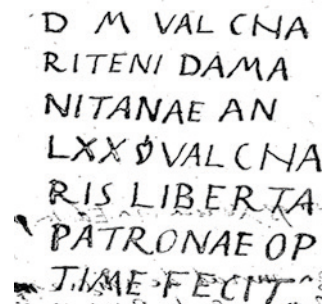 D M VAL CHA
RITENI DAMA
NITANAE AN
LXX VAL CHA
RIS LIBERTA
PATRONAE OP
TIME FECIT